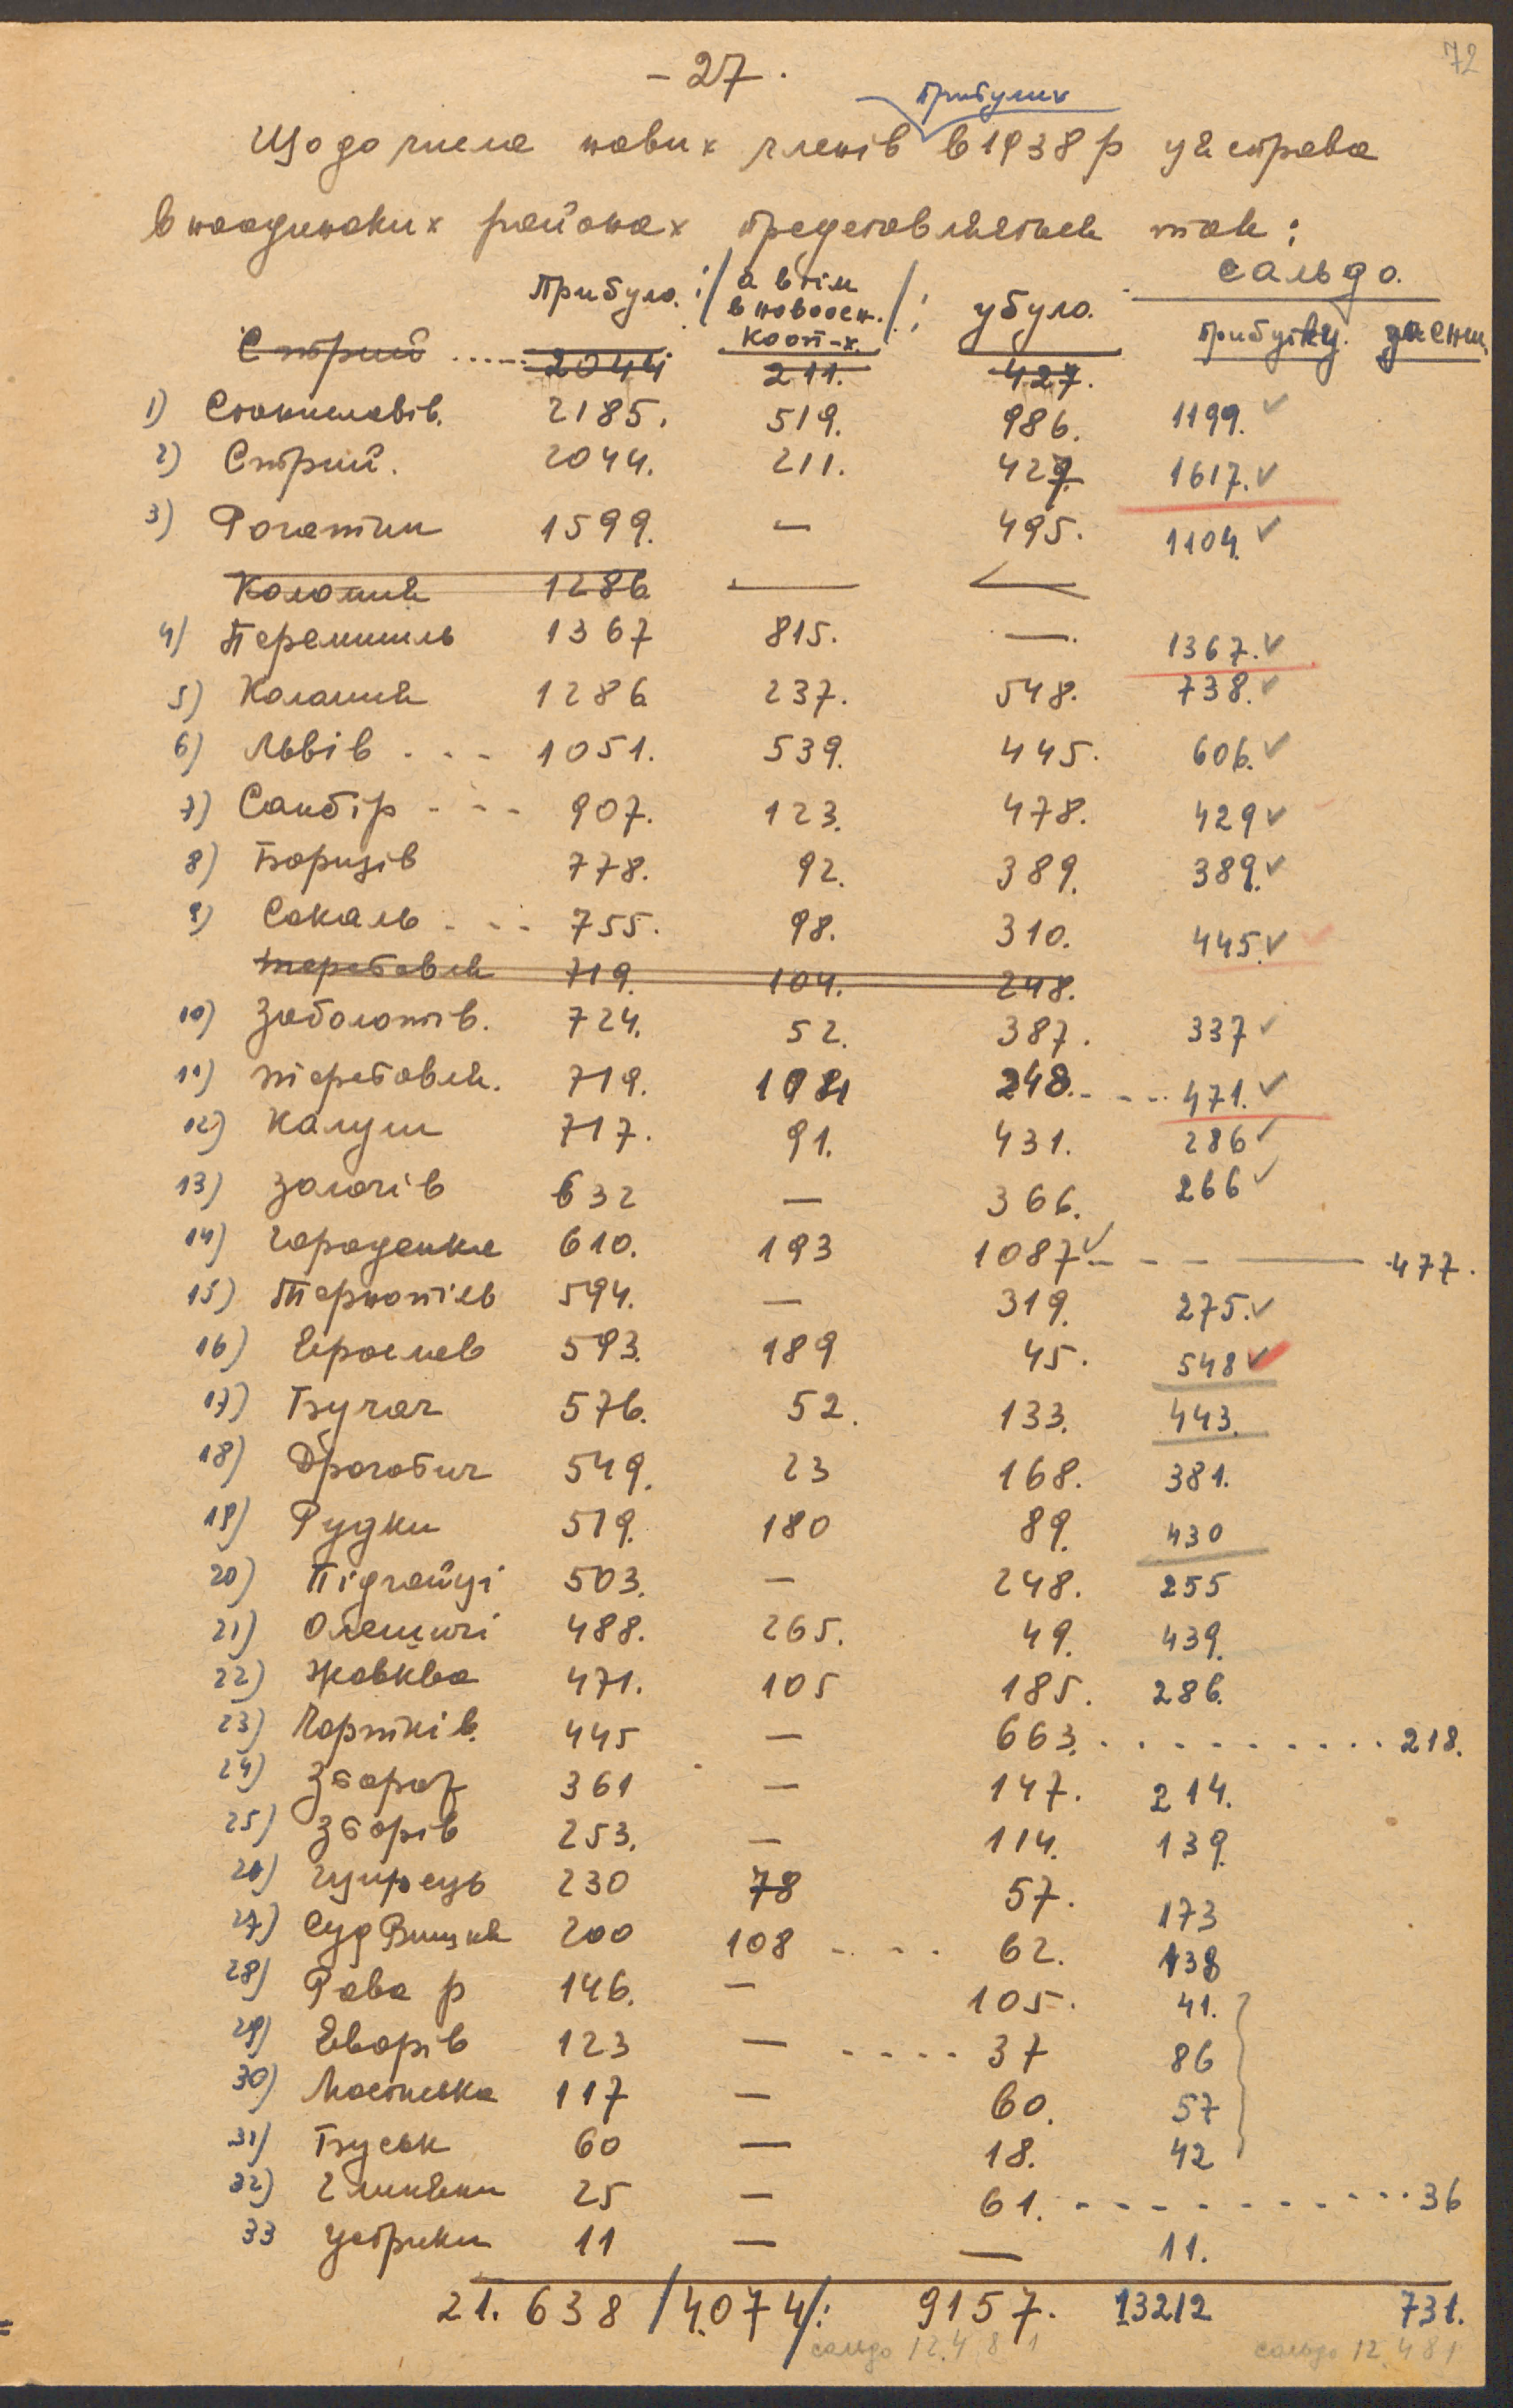 72
- 27.
прибулих
Що до числа нових членів в 1938 р ця справа
в поодиноких районах представляється так:
Прибуло: /а втім в новоосн. кооп-х./: убуло. сальдо.
прибутку. зменш.
Стрий ..... 2044 211. 427.
1) Станиславів. 2185. 519. 986. 1199. ✓
2) Стрий. 2044. 211. 427. 1617. ✓
3) Рогатин 1599. — 495. 1104. ✓
Коломия 1286 — —
4) Перемишль 1367 815. —. 1367. ✓
5) Коломия 1286 237. 548. 738. ✓
6) Львів . . - 1051. 539. 445. 606. ✓
7) Самбір - - - 907. 123. 478. 429 ✓
8) Борщів 778. 92. 389. 389. ✓
9) Сокаль . . . 755. 98. 310. 445. ✓
теребовля 719. 104. 248.
10) Заболотів. 724. 52. 387. 337 ✓
11) теребовля. 719. 104 248. - - .. 471. ✓
12) Калуш 717. 91. 431. 286 ✓
13) Золочів 632 — 366. 266 ✓
14) городенка 610. 193 1087 ✓ - - - — 477.
15) Тернопіль 594. — 319. 275. ✓
16) Ярослав 593. 189 45. 548 ✓
17) Бучач 576. 52. 133. 443.
18) Дрогобич 549. 23 168. 381.
19) Рудки 519. 180 89. 430
20) Підгайці 503. — 248. 255
21) Олешичі 488. 265. 49. 439.
22) Жовква 471. 105 185. 286.
23) Чортків. 445 — 663. . . . . . . . . . 218.
24) Збараж 361 — 147. 214.
25) Зборів 253. — 114. 139.
26) Щирець 230 78 57. 173
27) Суд Вишня 200 108 - - - - 62. 138
28) Рава р 146. — 105. 41.
29) Яворів 123 — - - - - 37 86
30) Мостиська 117 — 60. 57
31) Буськ 60 — 18. 42
32) Глиняни 25 — 61. - - - - - - - - - ... 36
33 Устрики 11 — — 11.
21. 638 /4.074/: 9157. 13212 731.
сальдо 12.481 сальдо 12.481